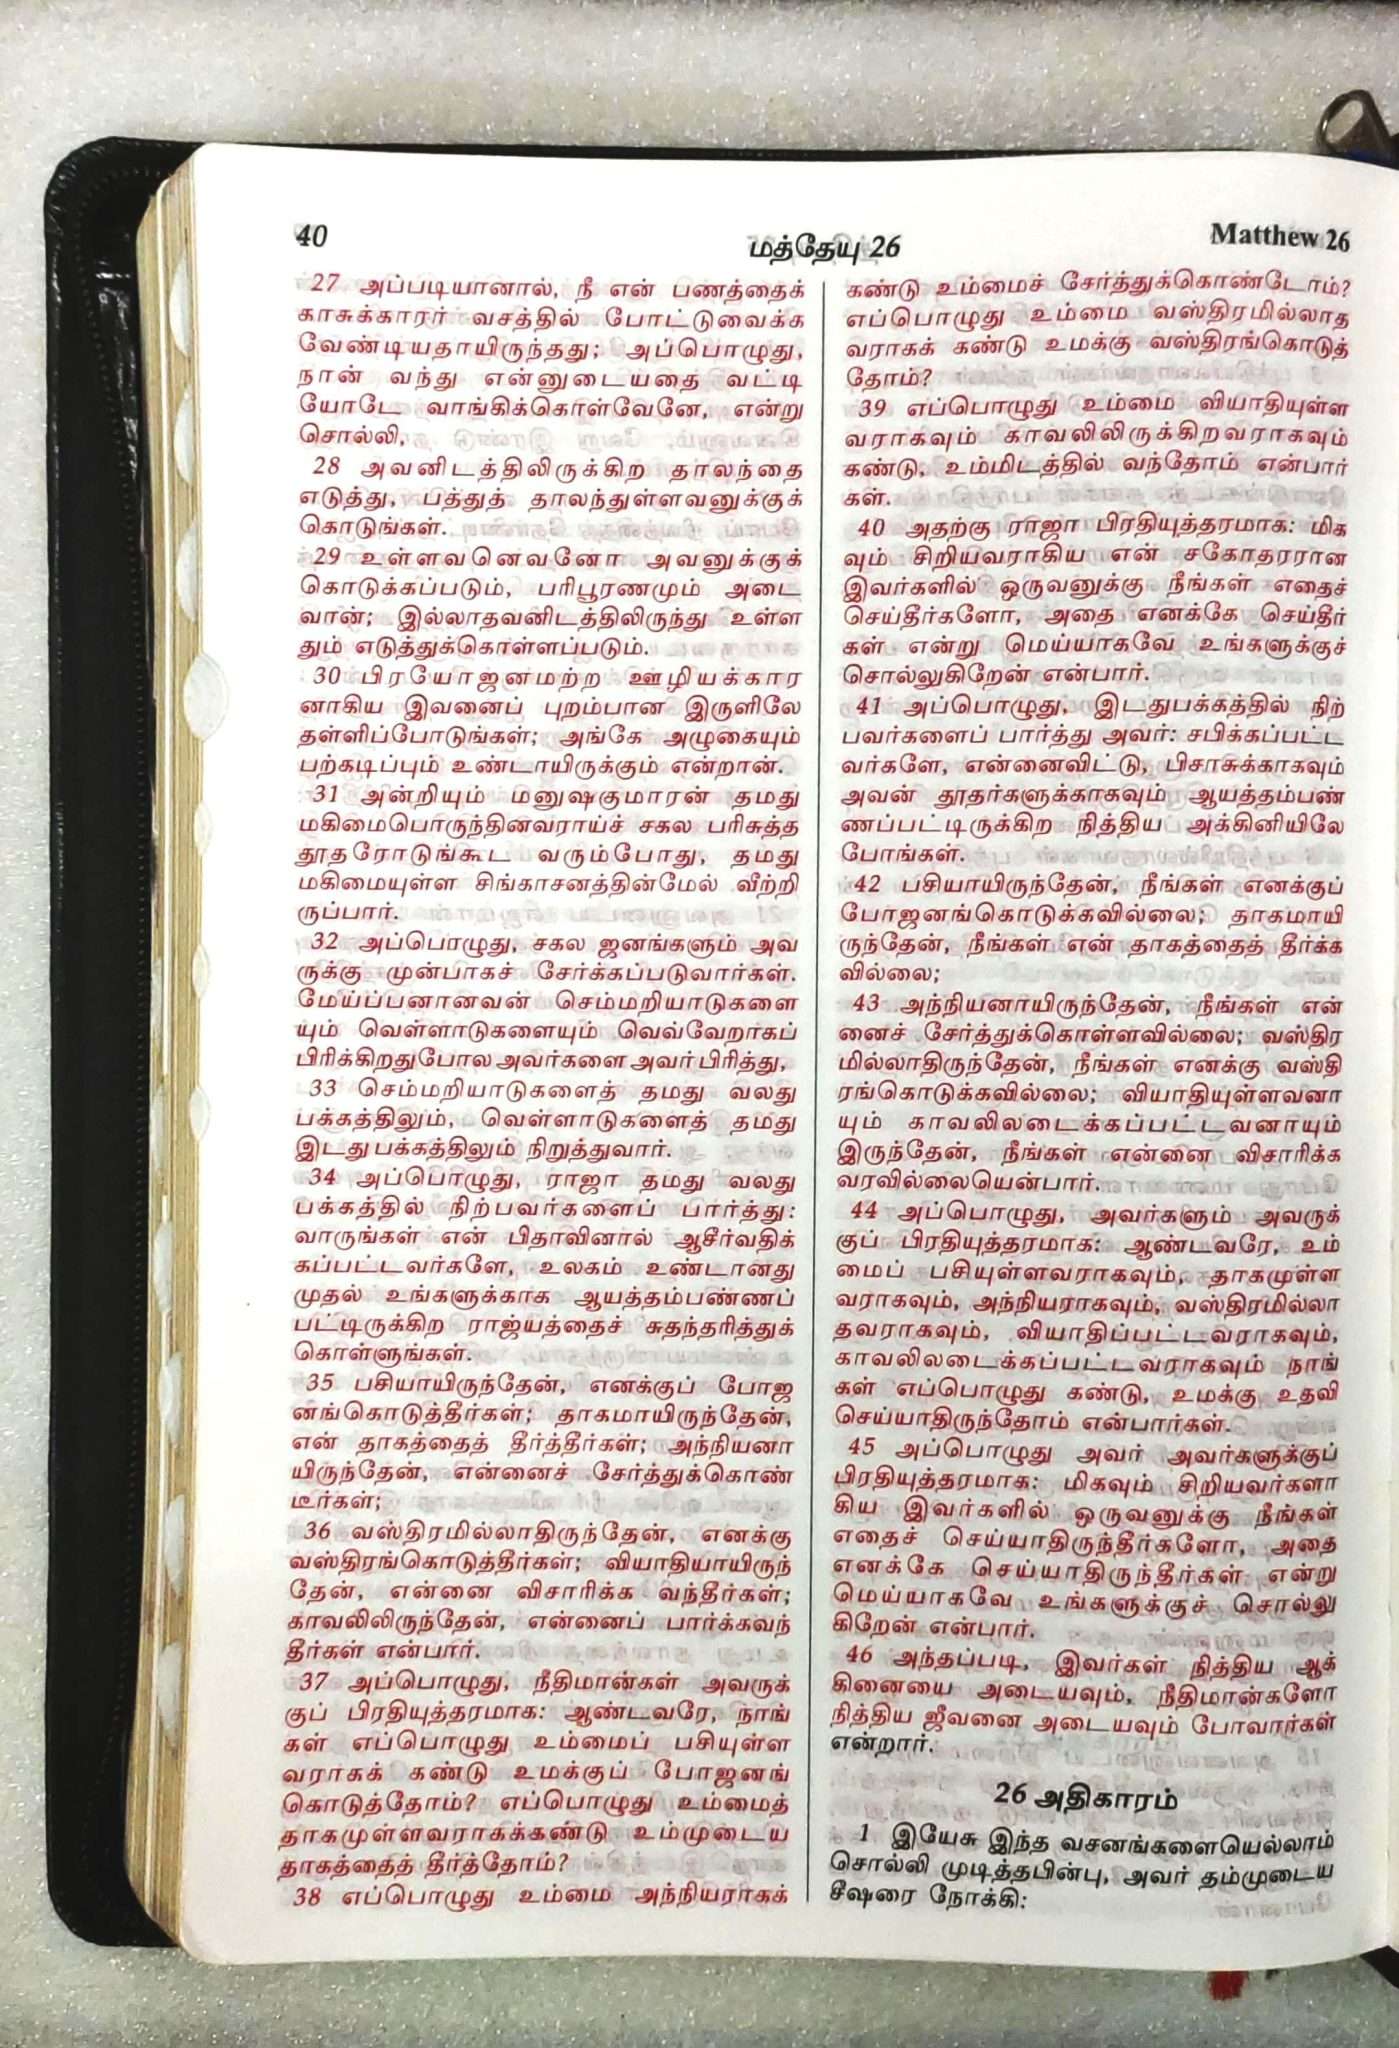 40
மத்தேயு 26
Matthew 26
27 அப்படியானால், நீ என் பணத்தைக்
காசுக்காரர் வசத்தில் போட்டுவைக்க
வேண்டியதாயிருந்தது; அப்பொழுது,
நான் வந்து என்னுடையதை வட்டி
யோடே வாங்கிக்கொள்வேனே, என்று
சொல்லி,
28 அவனிடத்திலிருக்கிற தாலந்தை
எடுத்து, பத்துத் தாலந்துள்ளவனுக்குக்
கொடுங்கள்.
29 உள்ளவனெவனோ அவனுக்குக்
கொடுக்கப்படும், பரிபூரணமும் அடை
வான்; இல்லாதவனிடத்திலிருந்து உள்ள
தும் எடுத்துக்கொள்ளப்படும்.
30 பிரயோஜனமற்ற ஊழியக்கார
னாகிய இவனைப் புறம்பான இருளிலே
தள்ளிப்போடுங்கள்; அங்கே அழுகையும்
பற்கடிப்பும் உண்டாயிருக்கும் என்றான்.
31 அன்றியும் மனுஷகுமாரன் தமது
மகிமைபொருந்தினவராய்ச் சகல பரிசுத்த
தூதரோடுங்கூட வரும்போது, தமது
மகிமையுள்ள சிங்காசனத்தின்மேல் வீற்றி
ருப்பார்.
32 அப்பொழுது, சகல ஜனங்களும் அவ
ருக்கு முன்பாகச் சேர்க்கப்படுவார்கள்.
மேய்ப்பனானவன் செம்மறியாடுகளை
யும் வெள்ளாடுகளையும் வெவ்வேறாகப்
பிரிக்கிறதுபோல அவர்களை அவர் பிரித்து,
33 செம்மறியாடுகளைத் தமது வலது
பக்கத்திலும், வெள்ளாடுகளைத் தமது
இடதுபக்கத்திலும் நிறுத்துவார்.
34 அப்பொழுது, ராஜா தமது வலது
பக்கத்தில் நிற்பவர்களைப் பார்த்து:
வாருங்கள் என் பிதாவினால் ஆசீர்வதிக்
கப்பட்டவர்களே, உலகம் உண்டானது
முதல் உங்களுக்காக ஆயத்தம்பண்ணப்
பட்டிருக்கிற ராஜ்யத்தைச் சுதந்தரித்துக்
கொள்ளுங்கள்.
35 பசியாயிருந்தேன், எனக்குப் போஜ
னங்கொடுத்தீர்கள்; தாகமாயிருந்தேன்,
என் தாகத்தைத் தீர்த்தீர்கள்; அந்நியனா
யிருந்தேன், என்னைச் சேர்த்துக்கொண்
டீர்கள்;
36 வஸ்திரமில்லாதிருந்தேன், எனக்கு
வஸ்திரங்கொடுத்தீர்கள்; வியாதியாயிருந்
தேன், என்னை விசாரிக்க வந்தீர்கள்;
காவலிலிருந்தேன், என்னைப் பார்க்கவந்
தீர்கள் என்பார்.
37 அப்பொழுது, நீதிமான்கள் அவருக்
குப் பிரதியுத்தரமாக: ஆண்டவரே, நாங்
கள் எப்பொழுது உம்மைப் பசியுள்ள
வராகக் கண்டு உமக்குப் போஜனங்
கொடுத்தோம்? எப்பொழுது உம்மைத்
தாகமுள்ளவராகக்கண்டு உம்முடைய
தாகத்தைத் தீர்த்தோம்?
38 எப்பொழுது உம்மை அந்நியராகக்
கண்டு உம்மைச் சேர்த்துக்கொண்டோம்?
எப்பொழுது உம்மை வஸ்திரமில்லாத
வராகக் கண்டு உமக்கு வஸ்திரங்கொடுத்
தோம்?
39 எப்பொழுது உம்மை வியாதியுள்ள
வராகவும் காவலிலிருக்கிறவராகவும்
கண்டு, உம்மிடத்தில் வந்தோம் என்பார்
கள்.
40 அதற்கு ராஜா பிரதியுத்தரமாக: மிக
வும் சிறியவராகிய என் சகோதரரான
இவர்களில் ஒருவனுக்கு நீங்கள் எதைச்
செய்தீர்களோ, அதை எனக்கே செய்தீர்
கள் என்று மெய்யாகவே உங்களுக்குச்
சொல்லுகிறேன் என்பார்.
41 அப்பொழுது, இடதுபக்கத்தில் நிற்
பவர்களைப் பார்த்து அவர்: சபிக்கப்பட்ட
வர்களே, என்னைவிட்டு, பிசாசுக்காகவும்
அவன் தூதர்களுக்காகவும் ஆயத்தம்பண்
ணப்பட்டிருக்கிற நித்திய அக்கினியிலே
போங்கள்.
42 பசியாயிருந்தேன், நீங்கள் எனக்குப்
போஜனங்கொடுக்கவில்லை; தாகமாயி
ருந்தேன், நீங்கள் என் தாகத்தைத் தீர்க்க
வில்லை;
43 அந்நியனாயிருந்தேன், நீங்கள் என்
னைச் சேர்த்துக்கொள்ளவில்லை; வஸ்திர
மில்லாதிருந்தேன், நீங்கள் எனக்கு வஸ்தி
ரங்கொடுக்கவில்லை; வியாதியுள்ளவனா
யும் காவலிலடைக்கப்பட்டவனாயும்
இருந்தேன், நீங்கள் என்னை விசாரிக்க
வரவில்லையென்பார்.
44 அப்பொழுது, அவர்களும் அவருக்
குப் பிரதியுத்தரமாக: ஆண்டவரே, உம்
மைப் பசியுள்ளவராகவும், தாகமுள்ள
வராகவும், அந்நியராகவும், வஸ்திரமில்லா
தவராகவும், வியாதிப்பட்டவராகவும்,
காவலிலடைக்கப்பட்டவராகவும் நாங்
கள் எப்பொழுது கண்டு, உமக்கு உதவி
செய்யாதிருந்தோம் என்பார்கள்.
45 அப்பொழுது அவர் அவர்களுக்குப்
பிரதியுத்தரமாக: மிகவும் சிறியவர்களா
கிய இவர்களில் ஒருவனுக்கு நீங்கள்
எதைச் செய்யாதிருந்தீர்களோ, அதை
எனக்கே செய்யாதிருந்தீர்கள் என்று
மெய்யாகவே உங்களுக்குச் சொல்லு
கிறேன் என்பார்.
46 அந்தப்படி, இவர்கள் நித்திய ஆக்
கினையை அடையவும், நீதிமான்களோ
நித்திய ஜீவனை அடையவும் போவார்கள்
என்றார்.
26 அதிகாரம்
1 இயேசு இந்த வசனங்களையெல்லாம்
சொல்லி முடித்தபின்பு, அவர் தம்முடைய
சீஷரை நோக்கி: